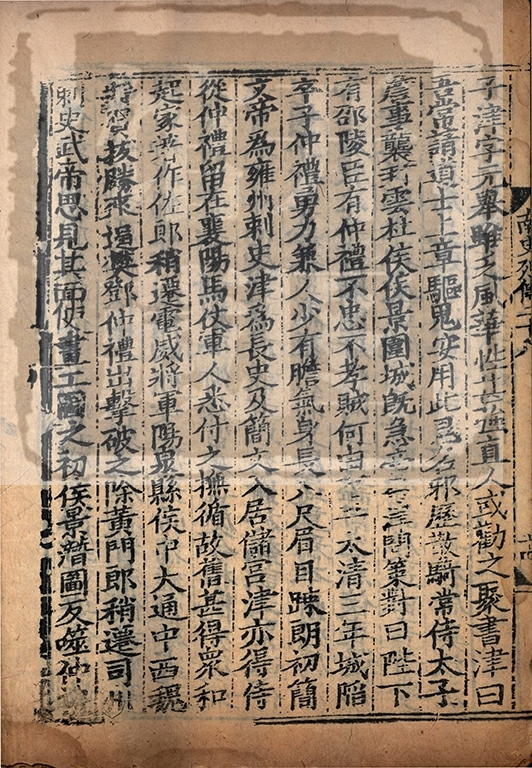 子津字元舉雖乏風華性甚強直人或勸之聚書津曰
吾常請道士上章驅鬼安用此鬼名邪歷散騎常侍太子
詹事襲封雲杜侯侯景圍城既急帝召津問策對曰陛下
有邵陵臣有仲禮不忠不孝賊何由平太清三年城陷
卒子仲禮勇力兼人少有膽氣身長八尺眉目踈朗初簡
文帝爲雍州刺史津爲長史及簡文入居儲宮津亦得侍
從仲禮留在襄陽馬仗軍人悉付之撫循故舊甚得衆和
起家著作佐郎稍遷電威將軍陽泉縣侯中大通中西魏
將賀拔勝來逼樊鄧仲禮出擊破之除黃門郎稍遷司州
刺史武帝思見其面使畫工圖之初侯景潛圖反噬仲